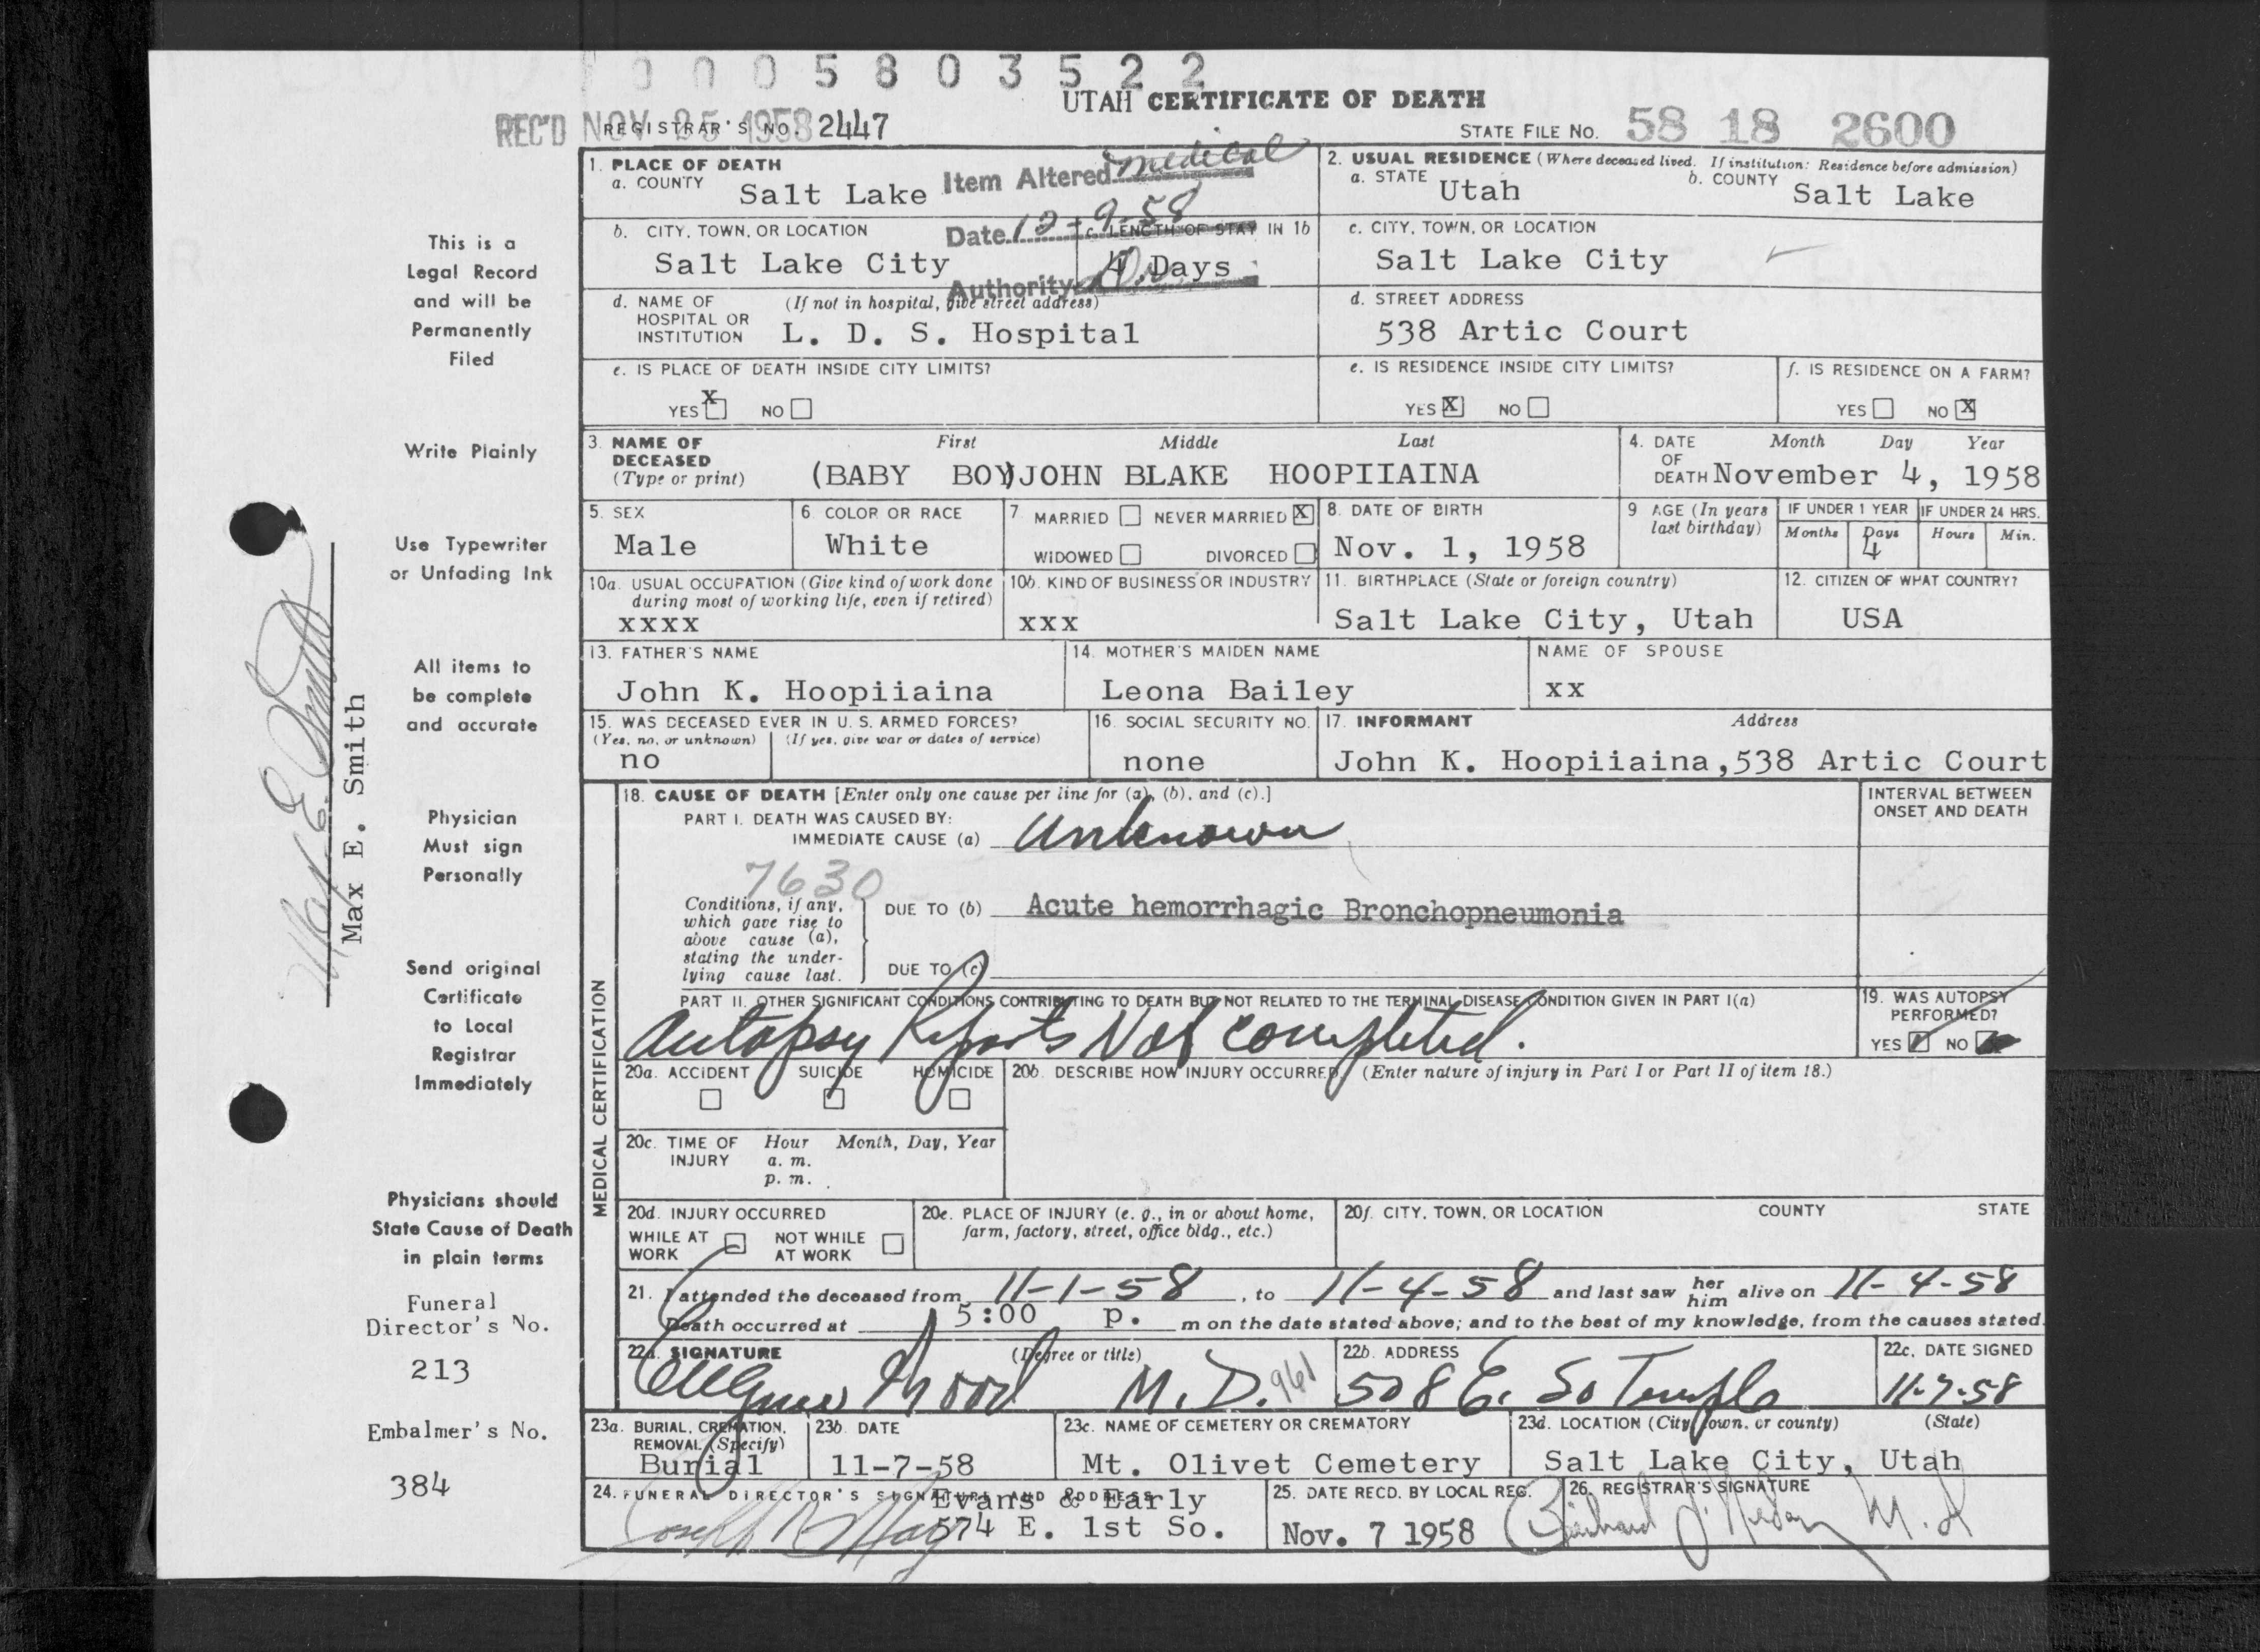 0 0 0 5 8 0 3 5 2 2
UTAH CERTIFICATE OF DEATH
REC'D NOV 25 1958
REGISTRAR'S NO. 2447
STATE FILE NO. 58 18 2600
1. PLACE OF DEATH
a. COUNTY Salt Lake
Item Altered medical
Date 12-9-58
Authority Dr.
2. USUAL RESIDENCE (Where deceased lived. If institution: Residence before admission)
a. STATE Utah
b. COUNTY Salt Lake
b. CITY, TOWN, OR LOCATION
Salt Lake City
c. LENGTH OF STAY IN 1b
4 Days
c. CITY, TOWN, OR LOCATION
Salt Lake City
d. NAME OF HOSPITAL OR INSTITUTION (If not in hospital, give street address)
L. D. S. Hospital
d. STREET ADDRESS
538 Artic Court
e. IS PLACE OF DEATH INSIDE CITY LIMITS?
YES X NO
e. IS RESIDENCE INSIDE CITY LIMITS?
YES X NO
f. IS RESIDENCE ON A FARM?
YES NO X
3. NAME OF DECEASED (Type or print)
First Middle Last
(BABY BOY)JOHN BLAKE HOOPIIAINA
4. DATE OF DEATH Month Day Year
November 4, 1958
5. SEX
Male
6. COLOR OR RACE
White
7 MARRIED NEVER MARRIED X
WIDOWED DIVORCED
8. DATE OF BIRTH
Nov. 1, 1958
9 AGE (In years last birthday)
IF UNDER 1 YEAR
Months Days
4
IF UNDER 24 HRS.
Hours Min.
10a. USUAL OCCUPATION (Give kind of work done during most of working life, even if retired)
xxxx
10b. KIND OF BUSINESS OR INDUSTRY
xxx
11. BIRTHPLACE (State or foreign country)
Salt Lake City, Utah
12. CITIZEN OF WHAT COUNTRY?
USA
13. FATHER'S NAME
John K. Hoopiiaina
14. MOTHER'S MAIDEN NAME
Leona Bailey
NAME OF SPOUSE
xx
15. WAS DECEASED EVER IN U. S. ARMED FORCES?
(Yes, no, or unknown) (If yes, give war or dates of service)
no
16. SOCIAL SECURITY NO.
none
17. INFORMANT Address
John K. Hoopiiaina,538 Artic Court
MEDICAL CERTIFICATION
18. CAUSE OF DEATH [Enter only one cause per line for (a), (b), and (c).]
PART I. DEATH WAS CAUSED BY:
IMMEDIATE CAUSE (a) Unknown
INTERVAL BETWEEN ONSET AND DEATH
7630
Conditions, if any, which gave rise to above cause (a), stating the underlying cause last.
DUE TO (b) Acute hemorrhagic Bronchopneumonia
DUE TO (c)
PART II. OTHER SIGNIFICANT CONDITIONS CONTRIBUTING TO DEATH BUT NOT RELATED TO THE TERMINAL DISEASE CONDITION GIVEN IN PART I(a)
Autopsy Reports Not completed.
19. WAS AUTOPSY PERFORMED?
YES NO
20a. ACCIDENT SUICIDE HOMICIDE
20b. DESCRIBE HOW INJURY OCCURRED (Enter nature of injury in Part I or Part II of item 18.)
20c. TIME OF INJURY Hour Month, Day, Year
a. m.
p. m.
20d. INJURY OCCURRED
WHILE AT WORK NOT WHILE AT WORK
20e. PLACE OF INJURY (e. g., in or about home, farm, factory, street, office bldg., etc.)
20f. CITY, TOWN, OR LOCATION COUNTY STATE
21. I attended the deceased from 11-1-58, to 11-4-58 and last saw her him alive on 11-4-58
Death occurred at 5:00 p. m on the date stated above; and to the best of my knowledge, from the causes stated.
22a. SIGNATURE (Degree or title)
Wood M.D. 961
22b. ADDRESS
508 E. So Temple
22c. DATE SIGNED
11-7-58
23a. BURIAL, CREMATION, REMOVAL (Specify)
Burial
23b. DATE
11-7-58
23c. NAME OF CEMETERY OR CREMATORY
Mt. Olivet Cemetery
23d. LOCATION (City, town, or county) (State)
Salt Lake City, Utah
24. FUNERAL DIRECTOR'S SIGNATURE AND ADDRESS
Evans & Early
574 E. 1st So.
25. DATE RECD. BY LOCAL REG.
Nov. 7 1958
26. REGISTRAR'S SIGNATURE
This is a
Legal Record
and will be
Permanently
Filed
Write Plainly
Use Typewriter
or Unfading Ink
All items to
be complete
and accurate
Physician
Must sign
Personally
Send original
Certificate
to Local
Registrar
Immediately
Physicians should
State Cause of Death
in plain terms
Funeral
Director's No.
213
Embalmer's No.
384
Max E. Smith
Max E. Smith